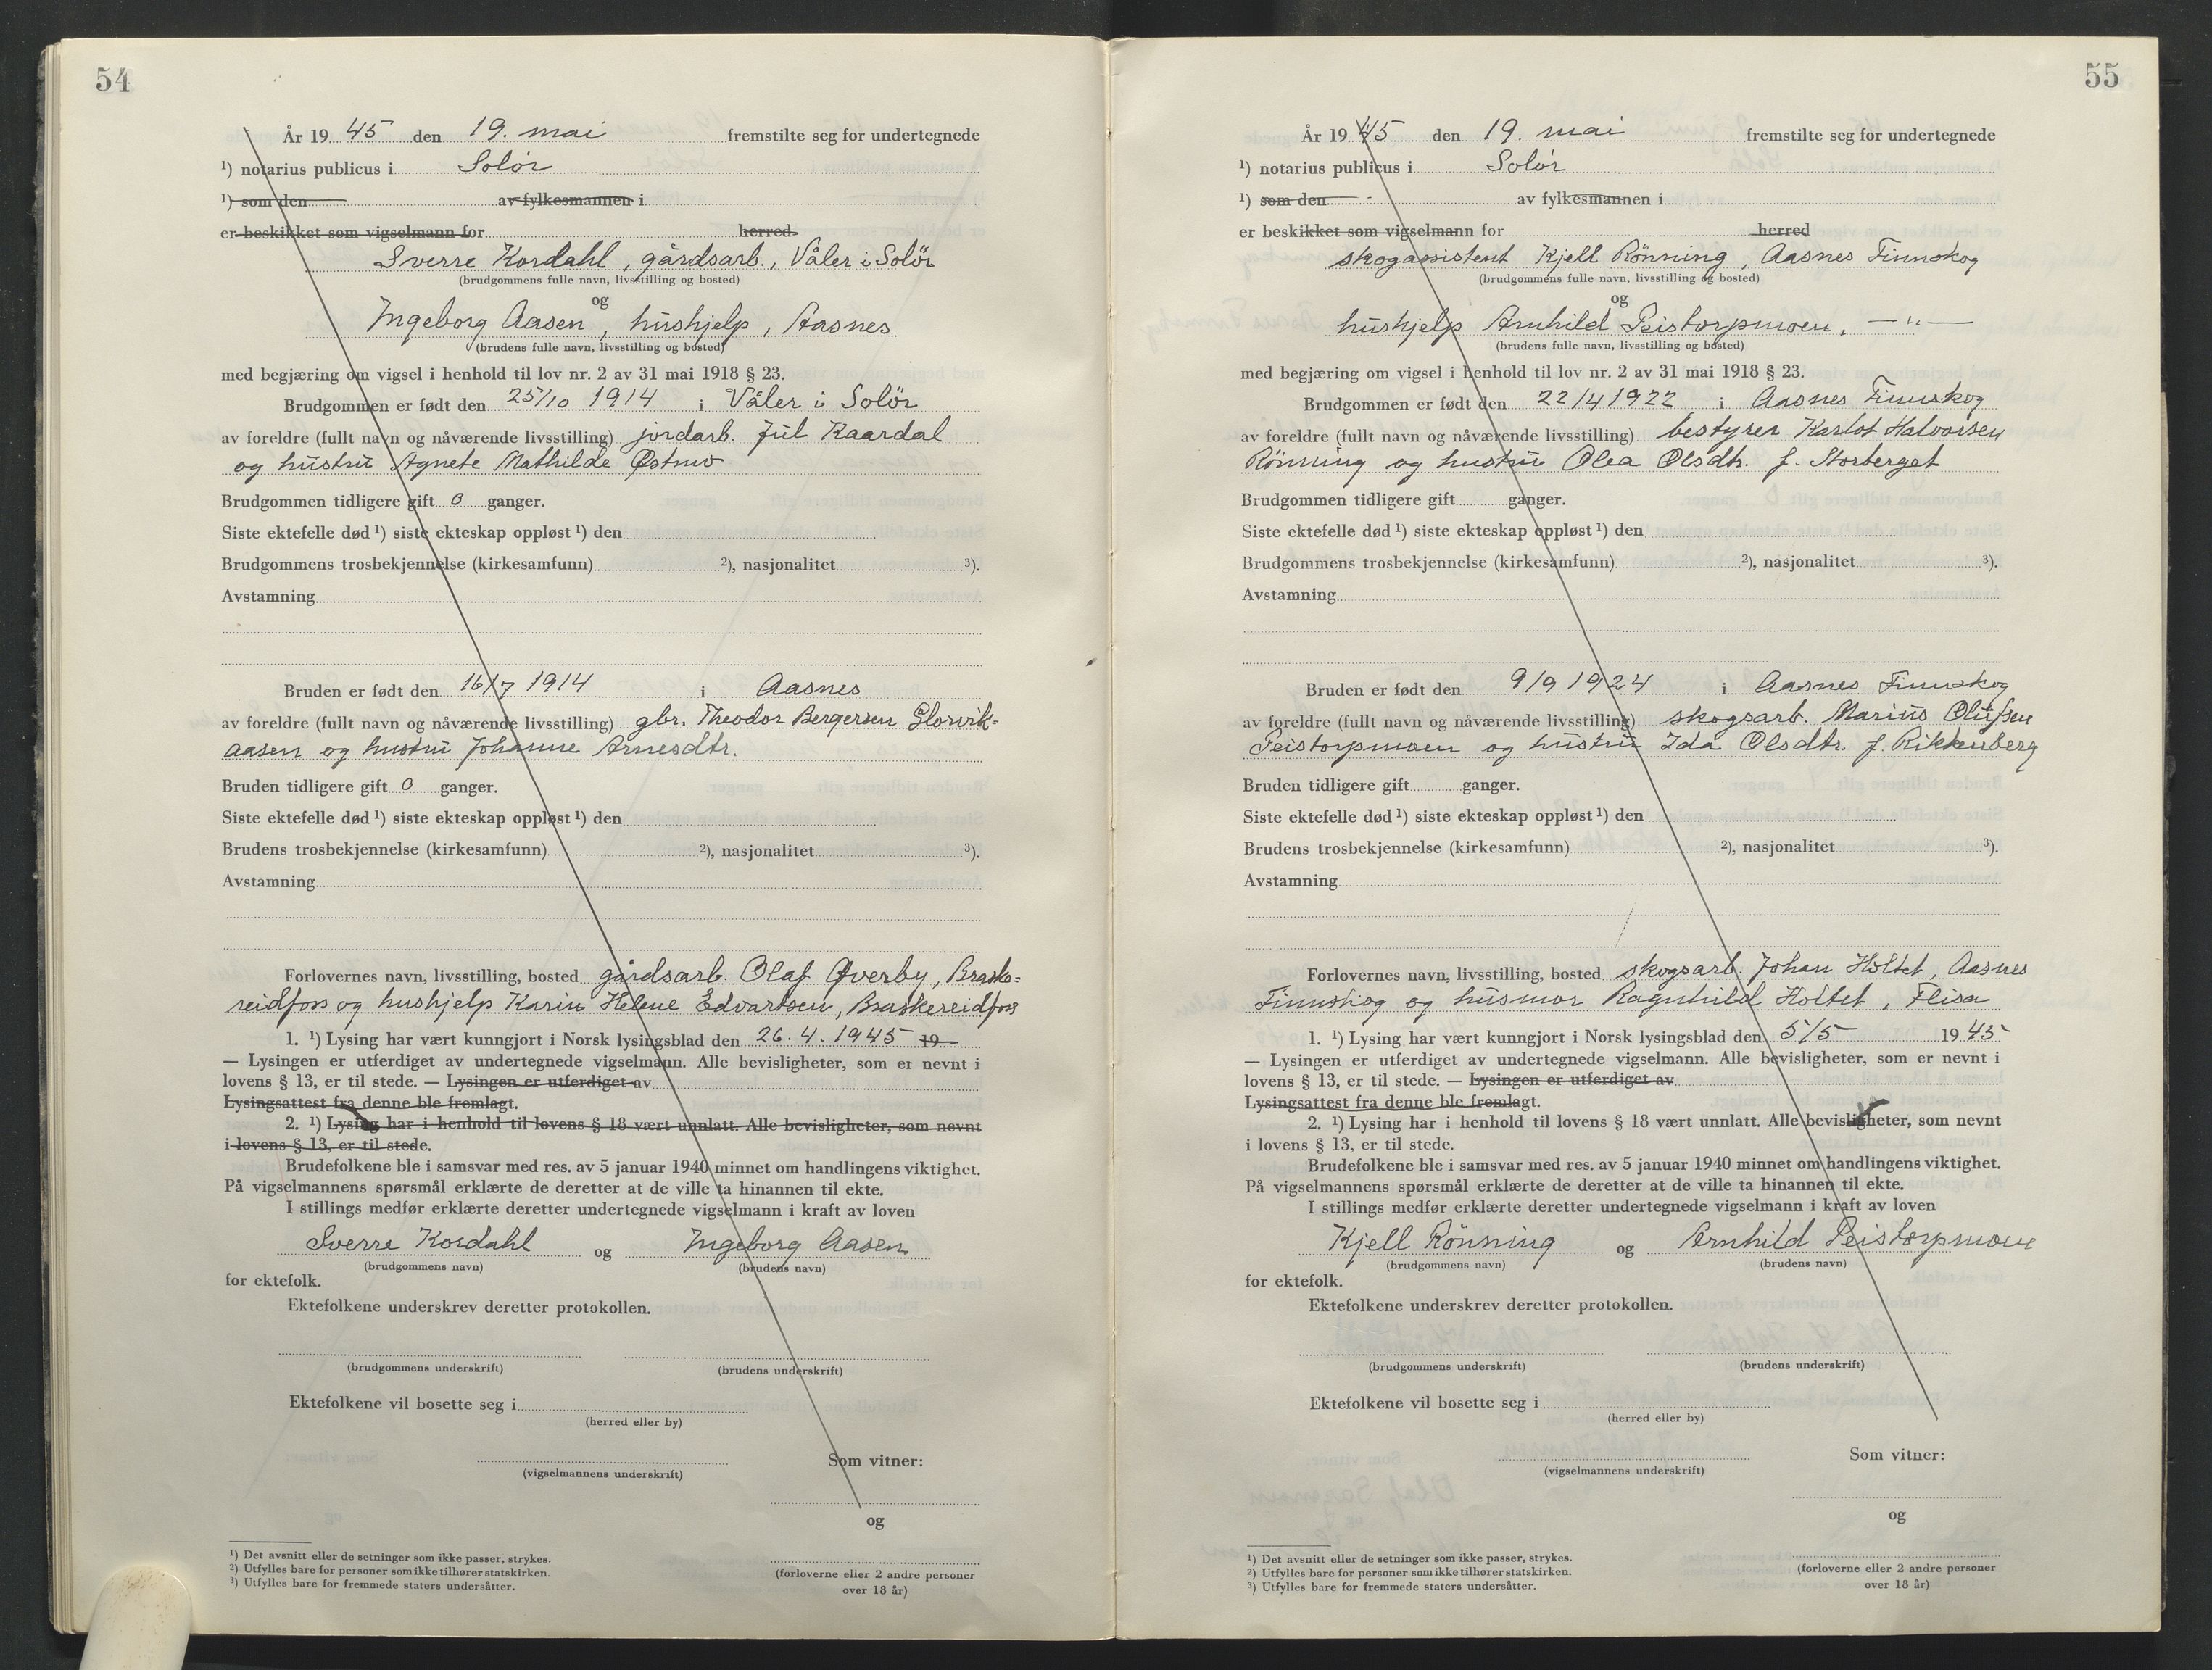 54
År 19 45 den 19. mai fremstilte seg for undertegnede
¹) notarius publicus i Solør
¹) som den av fylkesmannen i
er beskikket som vigselmann for herred
Sverre Kordahl, gårdsarb., Våler i Solør
(brudgommens fulle navn, livsstilling og bosted)
og
Ingeborg Aasen, hushjelp, Aasnes
(brudens fulle navn, livsstilling og bosted)
med begjæring om vigsel i henhold til lov nr. 2 av 31 mai 1918 § 23.
Brudgommen er født den 25/10 1914 i Våler i Solør
av foreldre (fullt navn og nåværende livsstilling) jordarb. Jul Kaardal
og hustru Agnete Mathilde Østmo
Brudgommen tidligere gift 0 ganger.
Siste ektefelle død ¹) siste ekteskap oppløst ¹) den
Brudgommens trosbekjennelse (kirkesamfunn) ²), nasjonalitet ³).
Avstamning
Bruden er født den 16/7 1914 i Aasnes
av foreldre (fullt navn og nåværende livsstilling) gbr. Theodor Bergersen Glorvik-
aasen og hustru Johanne Arnesdtr.
Bruden tidligere gift 0 ganger.
Siste ektefelle død ¹) siste ekteskap oppløst ¹) den
Brudens trosbekjennelse (kirkesamfunn) ²), nasjonalitet ³).
Avstamning
Forlovernes navn, livsstilling, bosted gårdsarb. Olaf Øverby, Braske-
reidfoss og hushjelp Karin Helene Edvartsen, Braskereidfoss
1. ¹) Lysing har vært kunngjort i Norsk lysingsblad den 26.4.1945 19
— Lysingen er utferdiget av undertegnede vigselmann. Alle bevisligheter, som er nevnt i
lovens § 13, er til stede. — Lysingen er utferdiget av
Lysingsattest fra denne ble fremlagt.
2. ¹) Lysing har i henhold til lovens § 18 vært unnlatt. Alle bevisligheter, som nevnt
i lovens § 13, er til stede.
Brudefolkene ble i samsvar med res. av 5 januar 1940 minnet om handlingens viktighet.
På vigselmannens spørsmål erklærte de deretter at de ville ta hinannen til ekte.
I stillings medfør erklærte deretter undertegnede vigselmann i kraft av loven
Sverre Kordahl og Ingeborg Aasen
(brudgommens navn) (brudens navn)
for ektefolk.
Ektefolkene underskrev deretter protokollen.
(brudgommens underskrift) (brudens underskrift)
Ektefolkene vil bosette seg i
(herred eller by)
Som vitner:
(vigselmannens underskrift)
og
¹) Det avsnitt eller de setninger som ikke passer, strykes.
²) Utfylles bare for personer som ikke tilhører statskirken.
³) Utfylles bare for fremmede staters undersåtter.
(forloverne eller 2 andre personer
over 18 år)
55
År 19 45 den 19. mai fremstilte seg for undertegnede
¹) notarius publicus i Solør
¹) som den av fylkesmannen i
er beskikket som vigselmann for herred
skogassistent Kjell Rönning, Aasnes Finnskog
(brudgommens fulle navn, livsstilling og bosted)
og
hushjelp Arnhild Peistorpmoen, — " —
(brudens fulle navn, livsstilling og bosted)
med begjæring om vigsel i henhold til lov nr. 2 av 31 mai 1918 § 23.
Brudgommen er født den 22/4 1922 i Aasnes Finnskog
av foreldre (fullt navn og nåværende livsstilling) bestyrer Karlot Halvorsen
Rönning og hustru Olea Olsdtr. f. Storberget
Brudgommen tidligere gift ganger.
Siste ektefelle død ¹) siste ekteskap oppløst ¹) den
Brudgommens trosbekjennelse (kirkesamfunn) ²), nasjonalitet ³).
Avstamning
Bruden er født den 9/9 1924 i Aasnes Finnskog
av foreldre (fullt navn og nåværende livsstilling) skogsarb. Marius Olufsen
Peistorpmoen og hustru Ida Olsdtr. f. Rikkenberg
Bruden tidligere gift ganger.
Siste ektefelle død ¹) siste ekteskap oppløst ¹) den
Brudens trosbekjennelse (kirkesamfunn) ²), nasjonalitet ³).
Avstamning
Forlovernes navn, livsstilling, bosted skogsarb. Johan Holtet, Aasnes
Finnskog og husmor Ragnhild Holtet, Flisa
1. ¹) Lysing har vært kunngjort i Norsk lysingsblad den 5/5 19 45
— Lysingen er utferdiget av undertegnede vigselmann. Alle bevisligheter, som er nevnt i
lovens § 13, er til stede. — Lysingen er utferdiget av
Lysingsattest fra denne ble fremlagt.
2. ¹) Lysing har i henhold til lovens § 18 vært unnlatt. Alle bevisligheter, som nevnt
i lovens § 13, er til stede.
Brudefolkene ble i samsvar med res. av 5 januar 1940 minnet om handlingens viktighet.
På vigselmannens spørsmål erklærte de deretter at de ville ta hinannen til ekte.
I stillings medfør erklærte deretter undertegnede vigselmann i kraft av loven
Kjell Rönning og Arnhild Peistorpmoen
(brudgommens navn) (brudens navn)
for ektefolk.
Ektefolkene underskrev deretter protokollen.
(brudgommens underskrift) (brudens underskrift)
Ektefolkene vil bosette seg i
(herred eller by)
Som vitner:
(vigselmannens underskrift)
og
¹) Det avsnitt eller de setninger som ikke passer, strykes.
²) Utfylles bare for personer som ikke tilhører statskirken.
³) Utfylles bare for fremmede staters undersåtter.
(forloverne eller 2 andre personer
over 18 år)